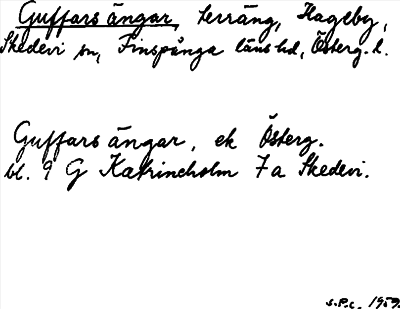 Guffars ängar, terräng, Hageby,
Skedevi sn, Finspånga läns hd, Österg. l.
Guffars ängar, ek Österg.
bl. 9 G Katrineholm 7a Skedevi.
S.P.C. 1959.